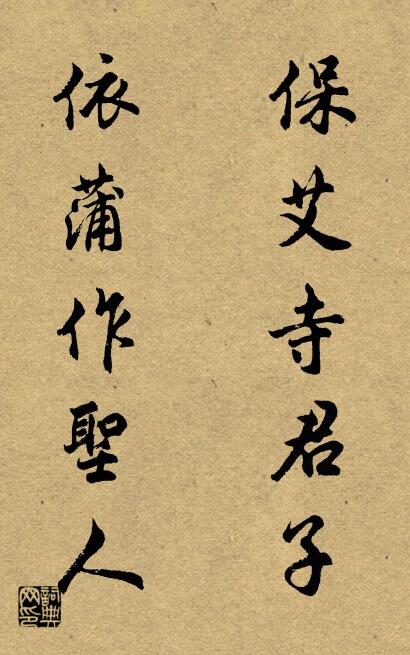 保艾寺君子
依蒲作聖人
詞典
网印